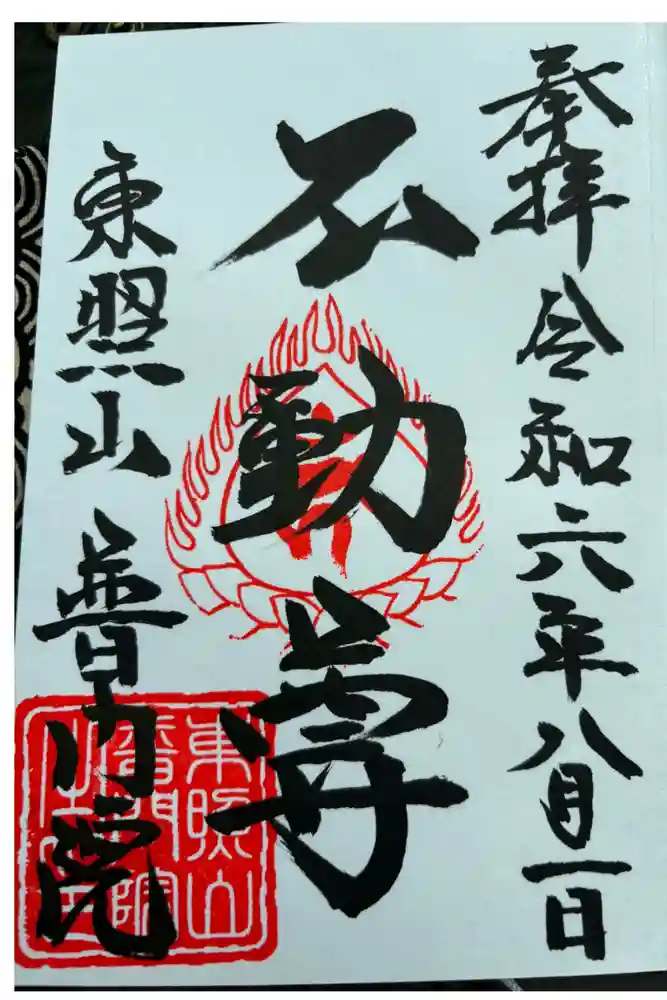 奉拝 令和六年八月一日
不動尊
東照山 普門院
東照山
普門院